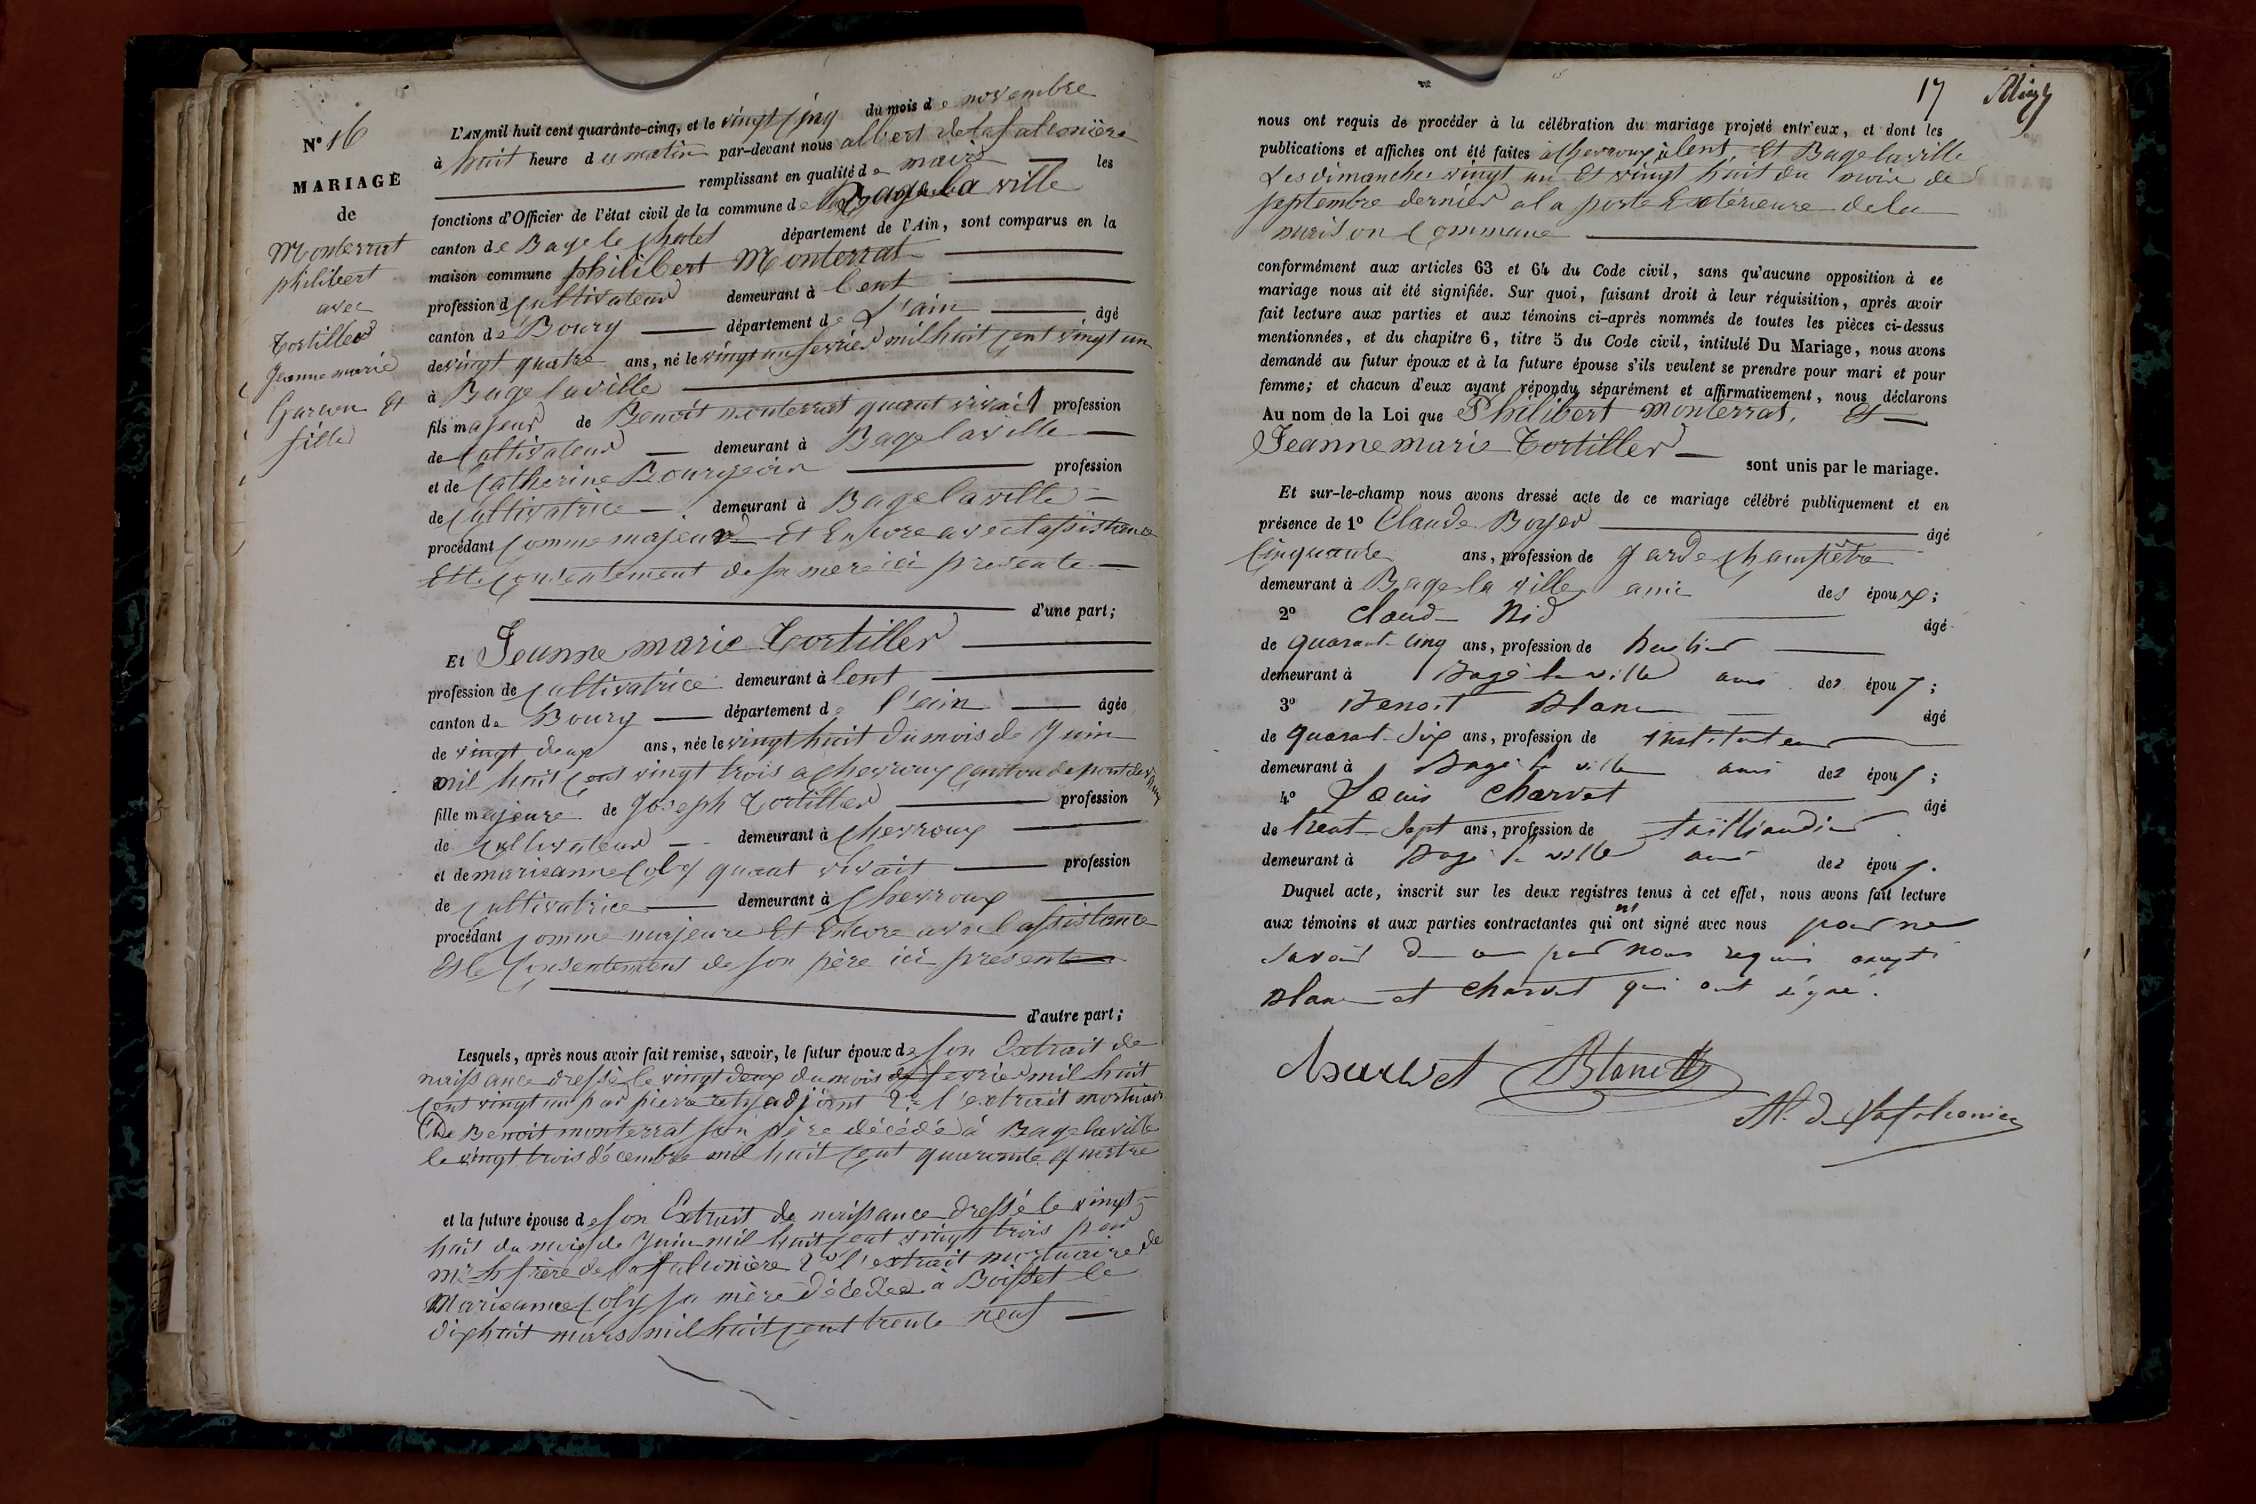 N° 16
MARIAGE
de
Monterrat
philibert
avec
Tortiller
Jeanne marie
Garcon et
fille
L'AN mil huit cent quarante-cinq, et le vingt cinq du mois de novembre
à huit heure du matin par-devant nous albert delafalconière
remplissant en qualité de maire les
fonctions d'Officier de l'état civil de la commune de Bage la ville
canton de Bage le chatel département de l'Ain, sont comparus en la
maison commune philibert Monterrat
profession de cultivateur demeurant à lent
canton de Bourg département de L'ain âgé
de vingt quatre ans, né le vingt un fevrier mil huit cent vingt un
à Bage la ville
fils majeur de Benoit monterrat quant vivait profession
de cultivateur demeurant à Bage la ville
et de Catherine Bourgeois profession
de cultivatrice demeurant à Bage la ville
procédant comme majeur Et Encore avec lassistance
Et le consentement de sa mere ici presente
d'une part;
Et Jeanne marie Tortiller
profession de cultivatrice demeurant à lent
canton de Bourg département de l'ain âgée
de vingt deux ans, née le vingt huit du mois de Juin
mil huit cent vingt trois a chevroux canton de pont de vaux
fille majeure de Joseph Tortiller profession
de cultivateur demeurant à Chevroux
et de marieanne Coly quant vivait profession
de cultivatrice demeurant à Chevroux
procédant comme majeure Et Encore avec lassistance
Et le consentement de son père ici present
d'autre part;
Lesquels, après nous avoir fait remise, savoir, le futur époux de son Extrait de
naissance dressé le vingt deux du mois de fevrier mil huit
cent vingt un par pierre adjoint 2° l'extrait mortuaire
De Benoit monterrat son père décédé à Bage la ville
le vingt trois décembre mil huit cent quarante quatre
et la future épouse de son Extrait de naissance dressé le vingt
huit du mois de Juin mil huit cent vingt trois par
Mr frère de la falconière 2° l'extrait mortuaire de
Marieanne Coly sa mère décédée à Boisset le
dix huit mars mil huit cent trente neuf
17
nous ont requis de procéder à la célébration du mariage projeté entr'eux, et dont les
publications et affiches ont été faites a chevroux à lent, Et Bage la ville
Les dimanches vingt un Et vingt huit du mois de
septembre dernier a la porte Extérieure de la
maison commune
conformément aux articles 63 et 64 du Code civil, sans qu'aucune opposition à ce
mariage nous ait été signifiée. Sur quoi, faisant droit à leur réquisition, après avoir
fait lecture aux parties et aux témoins ci-après nommés de toutes les pièces ci-dessus
mentionnées, et du chapitre 6, titre 5 du Code civil, intitulé Du Mariage, nous avons
demandé au futur époux et à la future épouse s'ils veulent se prendre pour mari et pour
femme; et chacun d'eux ayant répondu séparément et affirmativement, nous déclarons
Au nom de la Loi que Philibert Monterrat, Et
Jeanne marie Tortiller
sont unis par le mariage.
Et sur-le-champ nous avons dressé acte de ce mariage célébré publiquement et en
présence de 1° Claude Boyer âgé
Cinquante ans, profession de garde champêtre
demeurant à Bage la ville ami des époux;
2° Claude Nid âgé
de quarante cinq ans, profession de
demeurant à Bagé la ville ami des époux;
3° Benoit Blanc âgé
de quarante six ans, profession de instituteur
demeurant à Bagé la ville ami des époux;
4° Louis Charvet âgé
de trente sept ans, profession de taillandier
demeurant à Bagé la ville ami des époux.
Duquel acte, inscrit sur les deux registres tenus à cet effet, nous avons fait lecture
aux témoins et aux parties contractantes qui n'ont signé avec nous pour ne
savoir de ce par nous requis excepté
Blanc et Charvet qui ont signé.
Charvet Blanc
Al. De Lafalconière